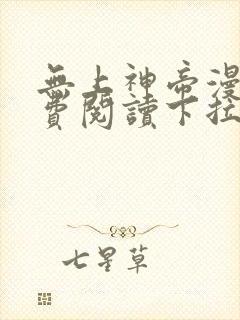 無上神帝漫
費閱讀下拉
七星草